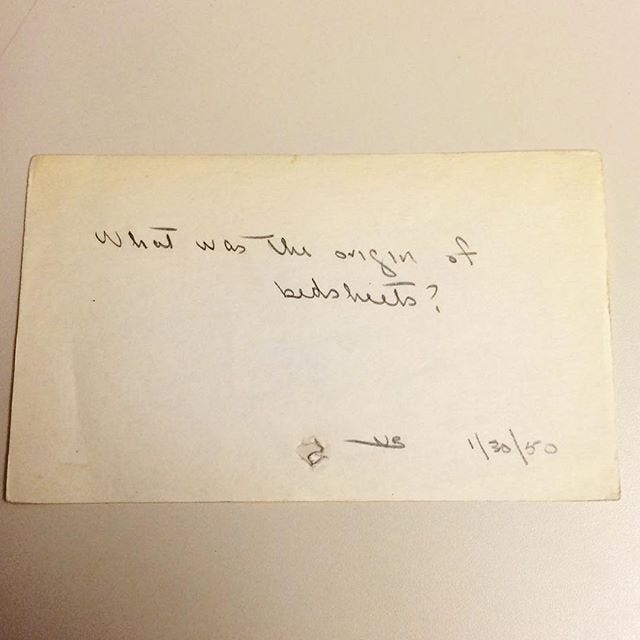 What was the origin of
bedsheets?
NS 1/30/50